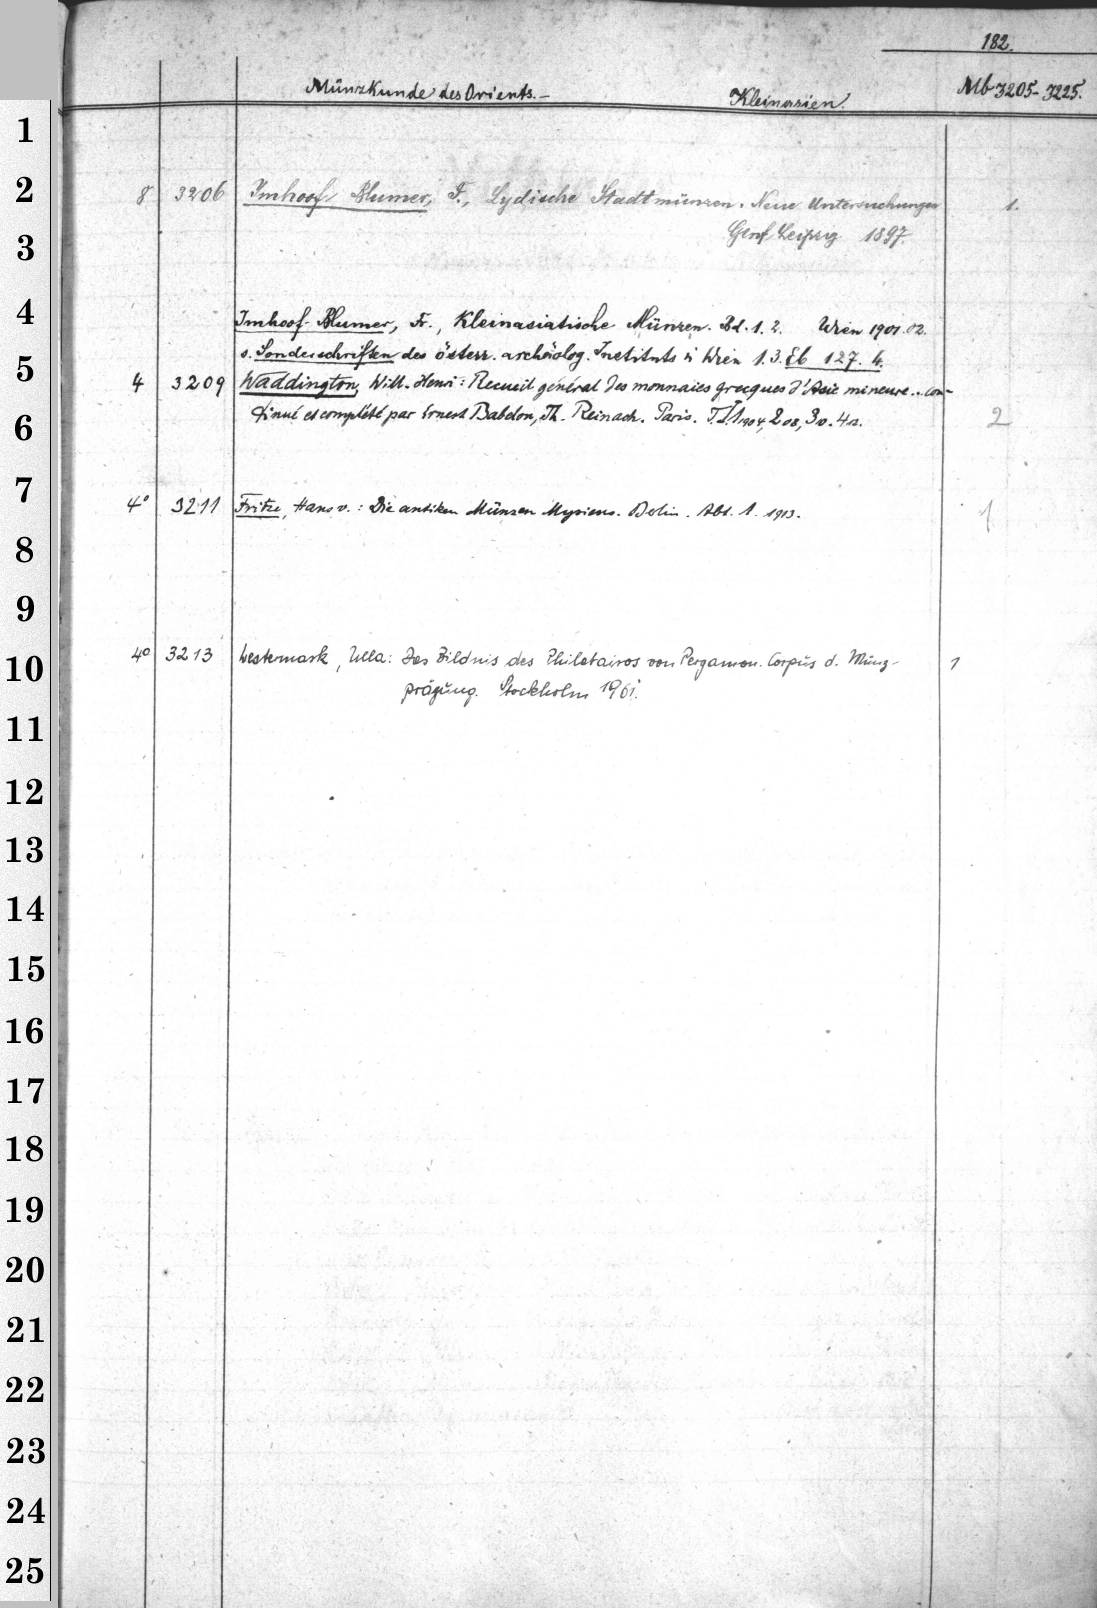 182.
Münzkunde des Orients.- Kleinasien. Mb 3205-3225.
1
2 8 3206 Imhoof-Blumer, F., Lydische Stadtmünzen. Neue Untersuchungen 1.
3 Genf Leipzig 1897.
4 Imhoof-Blumer, Fr., Kleinasiatische Münzen. Bd. 1. 2. Wien 1901.02.
s. Sonderschriften des österr. archäolog. Instituts i Wien 1.3. Eb 127. 4.
5 4 3209 Waddington, Will. Henri: Recueil général des monnaies grecques d'Asie mineure... con-
6 tinué et complété par Ernest Babelon, Th. Reinach. Paris. T. I. 1 1904, 2 08, 3 10. 4 12. 2
7 4° 3211 Fritze, Hans v.: Die antiken Münzen Mysiens. Berlin. Abt. 1. 1913. 1
8
9
10 4° 3213 Westermark, Ulla: Das Bildnis des Philetairos von Pergamon. Corpus d. Münz- 1
prägung. Stockholm 1961.
11
12
13
14
15
16
17
18
19
20
21
22
23
24
25